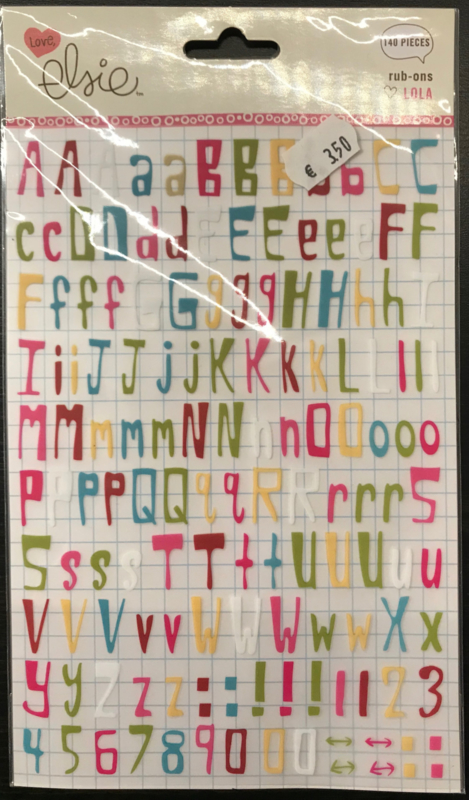 Love,
elsie™
140 PIECES
rub-ons
♡ LOLA
€ 3.50
A A A a a B B B b b C C
c c D D d d E E E e e e F F
F f f f G G g g g g H H h h I
I i i J J j j K K k k L L l l
M M m m m N N n n O O o o o
P P P P Q Q q q R R r r r S
S s s s T T t t U U U u u
V V V v v W W W w w X x
y y Z z z : : ! ! ! 1 1 2 3
4 5 6 7 8 9 0 0 0 ↔ ↔